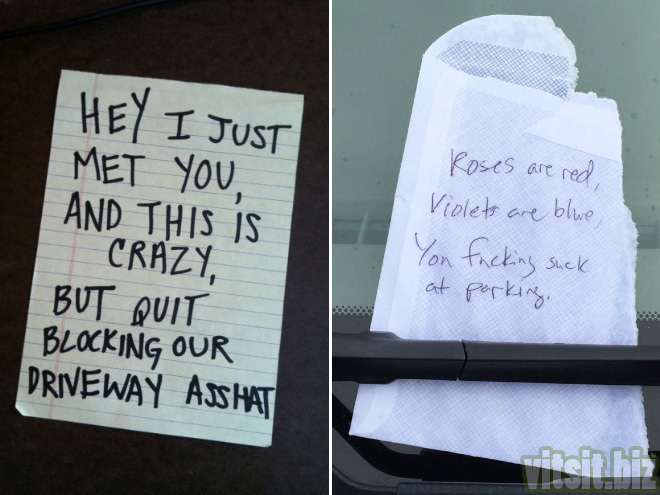 HEY I JUST
MET YOU,
AND THIS IS
CRAZY,
BUT QUIT
BLOCKING OUR
DRIVEWAY ASSHAT
Roses are red,
Violets are blue,
You fucking suck
at parking.
vitsit.biz